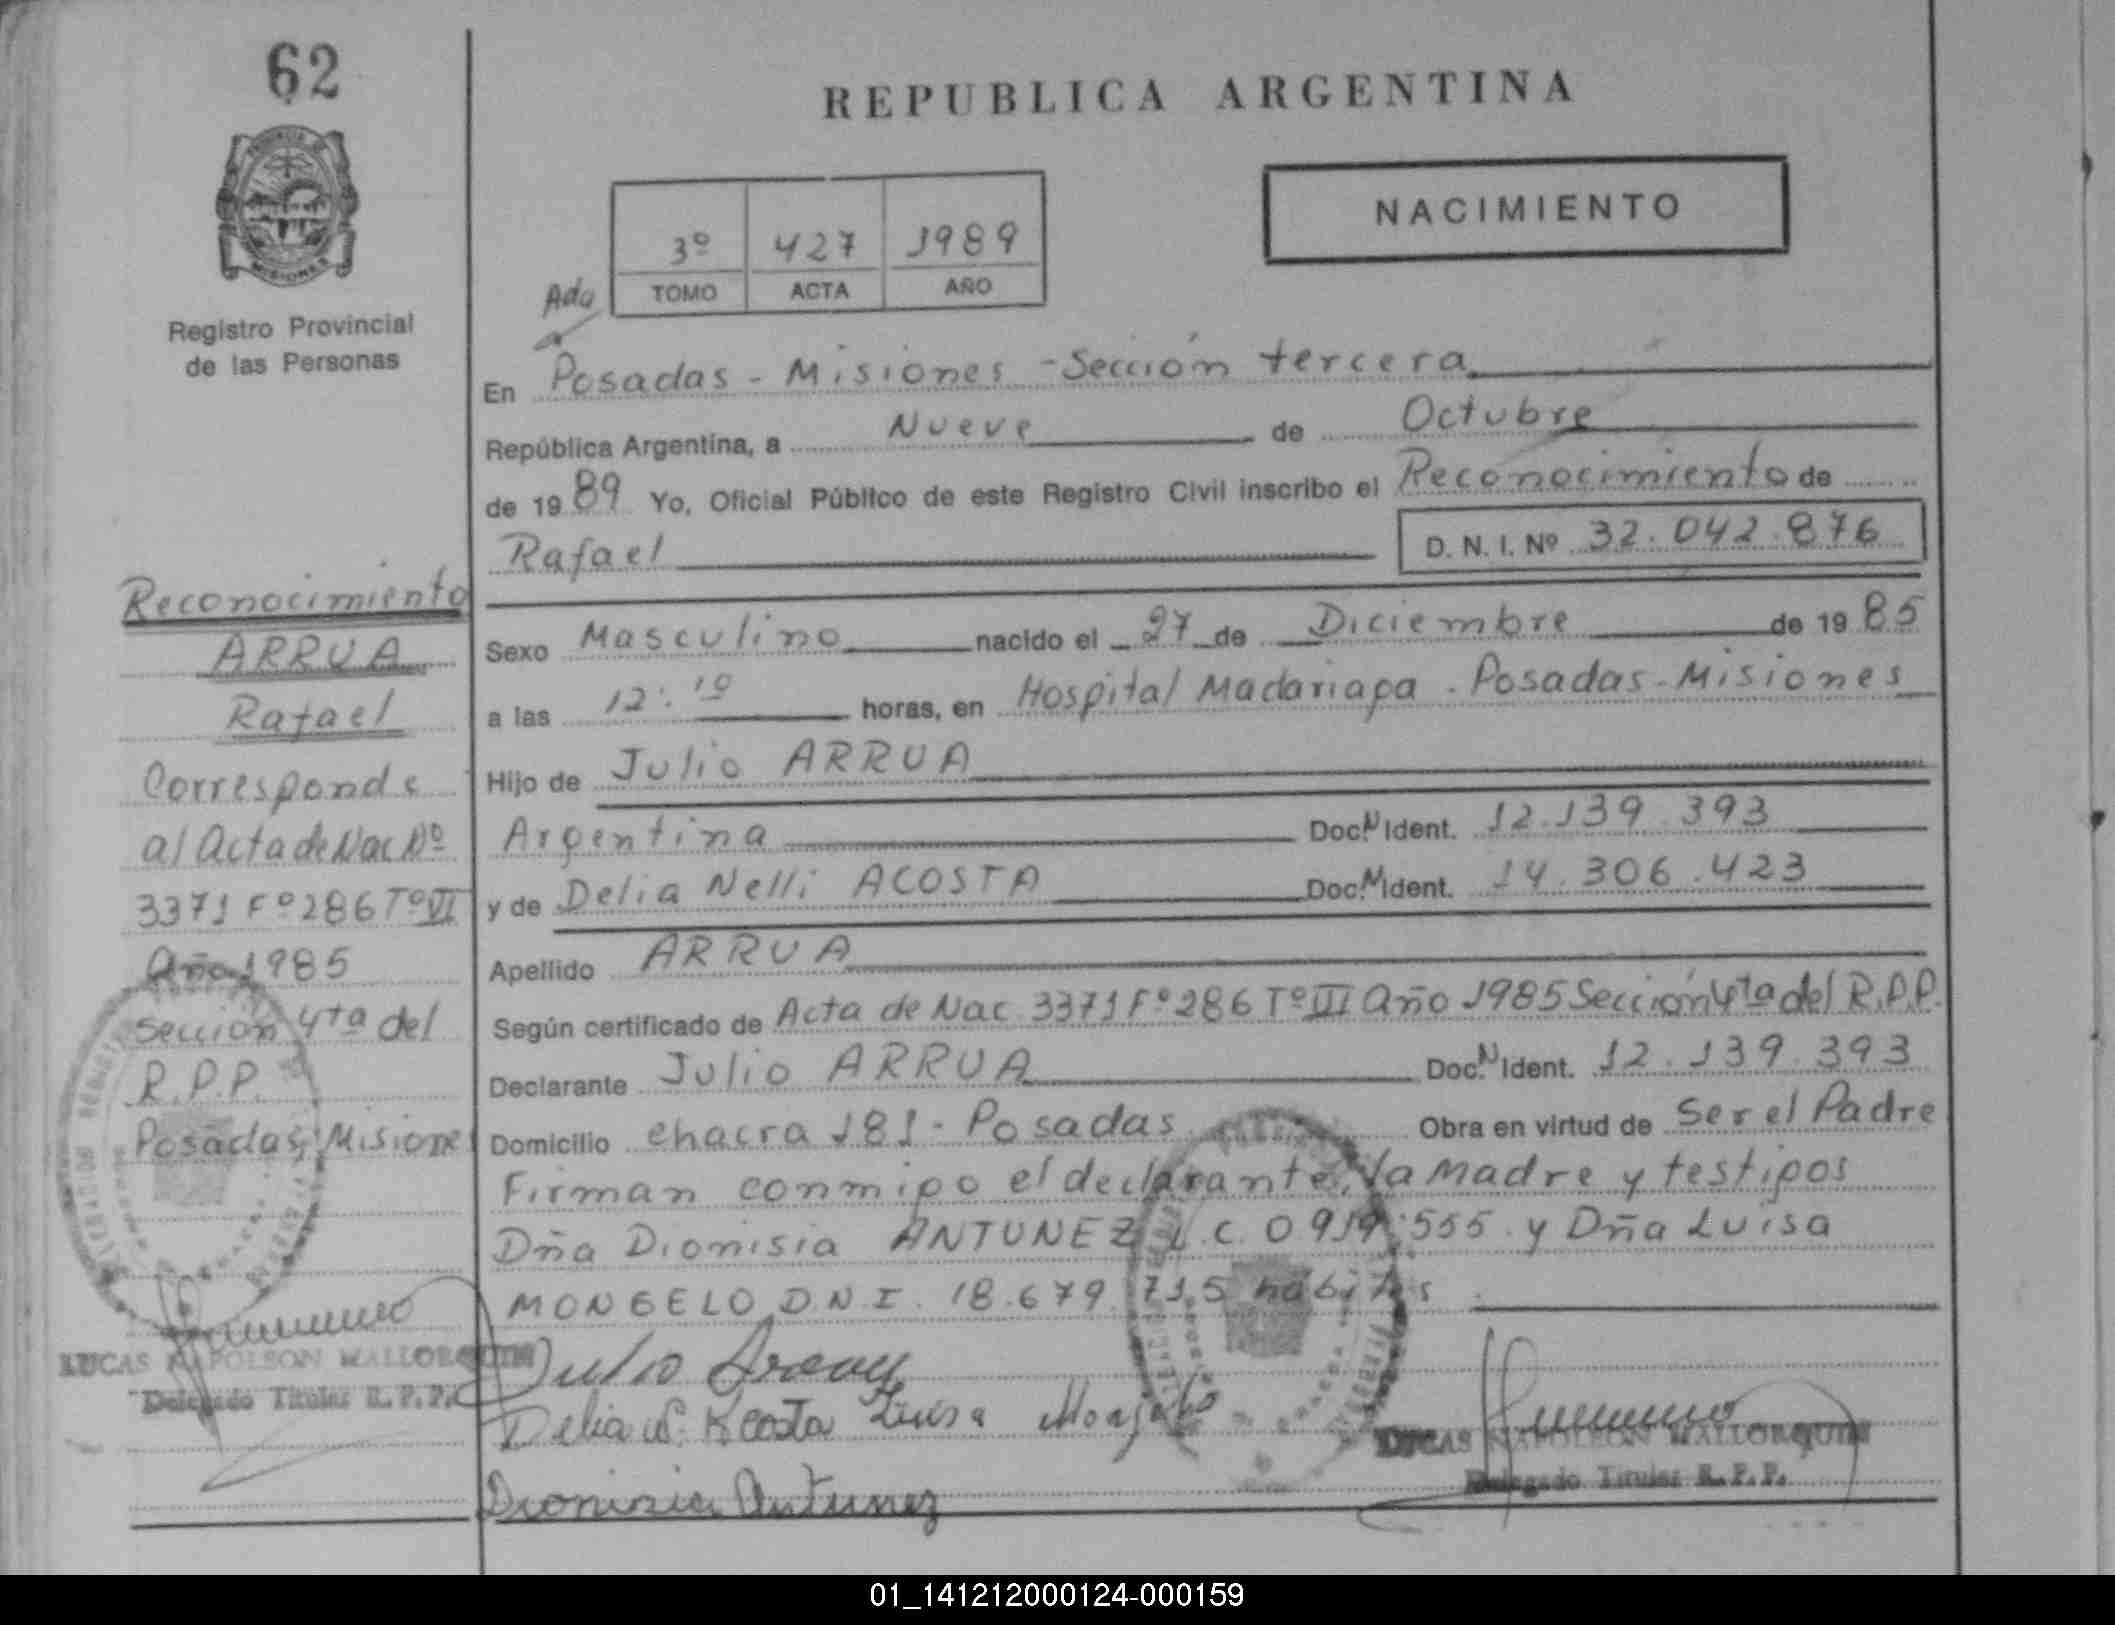 62
REPUBLICA ARGENTINA
NACIMIENTO
3º 427 1989
TOMO ACTA AÑO
Ada
MISIONES
Registro Provincial
de las Personas
En Posadas - Misiones - Sección tercera
República Argentina, a Nueve de Octubre
de 1989 Yo, Oficial Público de este Registro Civil inscribo el Reconocimiento de
Rafael D. N. I. Nº 32.042.876
Sexo Masculino nacido el 27 de Diciembre de 1985
a las 12:10 horas, en Hospital Madariaga - Posadas - Misiones
Hijo de Julio ARRUA
Argentina Doc. N Ident. 12.139.393
y de Delia Nelli ACOSTA Doc. N Ident. 14.306.423
Apellido ARRUA
Según certificado de Acta de Nac 3371 Fº 286 Tº III Año 1985 Sección 4ta del R.P.P.
Declarante Julio ARRUA Doc. N Ident. 12.139.393
Domicilio chacra 181 - Posadas Obra en virtud de Ser el Padre
Firman conmigo el declarante, la Madre y testigos
Dña Dionisia ANTUNEZ L.C. 0919.555 y Dña Luisa
MONGELO D.N.I. 18.679.715 habiles
Reconocimiento
ARRUA
Rafael
Corresponde
al Acta de Nac Nº
3371 Fº 286 Tº VI
Año 1985
Sección 4ta del
R.P.P.
Posadas, Misiones
LUCAS NAPOLEON MALLORQUIN
Delegado Titular R.P.P.
Julio Arruay
Delia N. Acosta Luisa Mongelo
Dionisia Antunez
LUCAS NAPOLEON MALLORQUIN
Delegado Titular R.P.P.
01_141212000124-000159